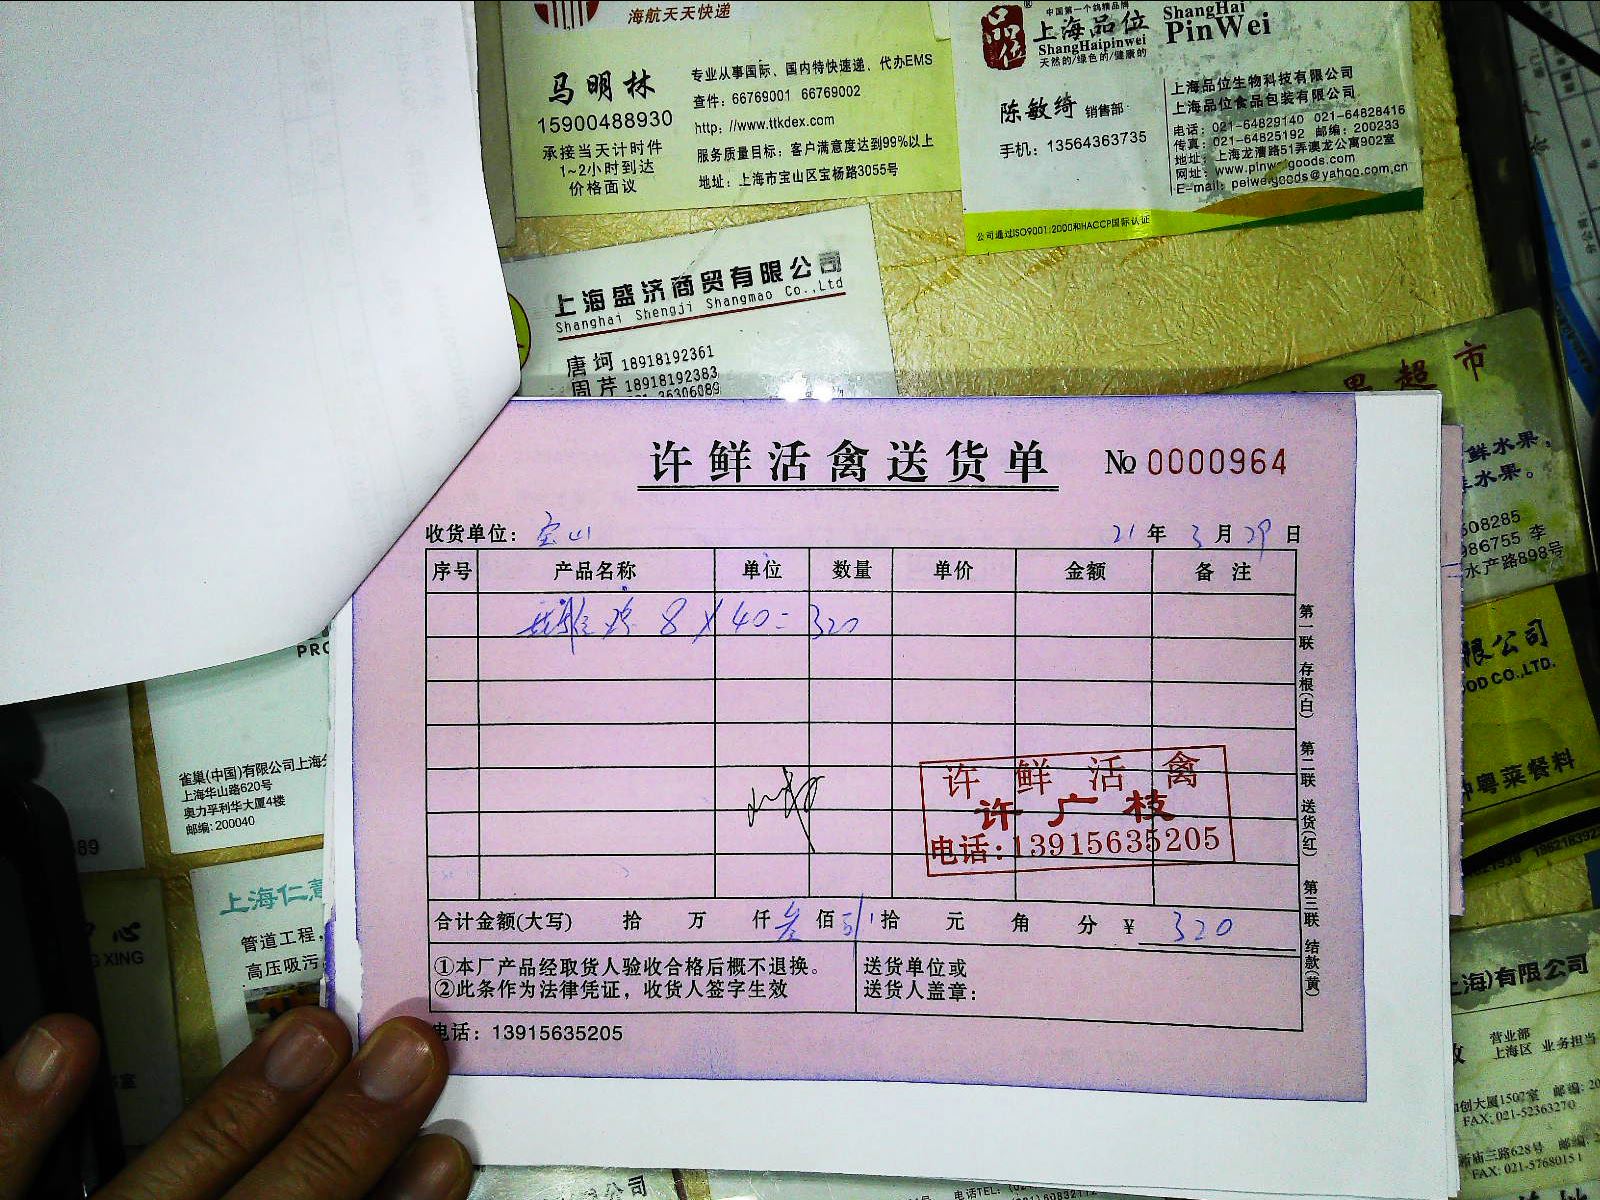 海航天天快递
马明林
15900488930
承接当天计时件
1~2小时到达
价格面议
专业从事国际、国内特快速递、代办EMS
查件：66769001 66769002
http：//www.ttkdex.com
服务质量目标：客户满意度达到99%以上
地址：上海市宝山区宝杨路3055号
中国第一个鸽精品牌
品位
上海品位
ShangHaipinwei
天然的/绿色的/健康的
ShangHai
PinWei
陈敏绮 销售部
手机：13564363735
上海品位生物科技有限公司
上海品位食品包装有限公司
电话：021-64829140 021-64828416
传真：021-64825192 邮编：200233
地址：上海龙漕路51弄澳龙公寓902室
网址：www.pinweigoods.com
E-mail：peiweigoods@yahoo.com.cn
公司通过ISO9001:2000和HACCP国际认证
上海盛济商贸有限公司
Shanghai Shengji Shangmao Co.,Ltd
唐坷 18918192361
周芹 18918192383
36306089
果超市
鲜水果。
水果。
508285
986755 李
水产路898号
限公司
OD CO.,LTD.
粤菜餐料
许鲜活禽送货单 No 0000964
收货单位：宝山 21年3月29日
序号 产品名称 单位 数量 单价 金额 备注
鸡 8 X 40= 320
第一联 存根(白)
第二联 送货(红)
第三联 结款(黄)
许鲜活禽
许广枝
电话:13915635205
合计金额(大写) 拾 万 仟 叁 佰 拾 元 角 分 ￥ 320
①本厂产品经取货人验收合格后概不退换。
②此条作为法律凭证，收货人签字生效
送货单位或
送货人盖章：
电话：13915635205
PRO
雀巢(中国)有限公司上海分
上海华山路620号
奥力孚利华大厦4楼
邮编: 200040
89
上海仁
管道工程，
高压吸污
心
G XING
室
上海)有限公司
营业部
上海区 业务担当
创大厦1507室 邮编: 20
FAX: 021-52363270
新庙三路628号 邮编: 2
FAX: 021-57680151
公司